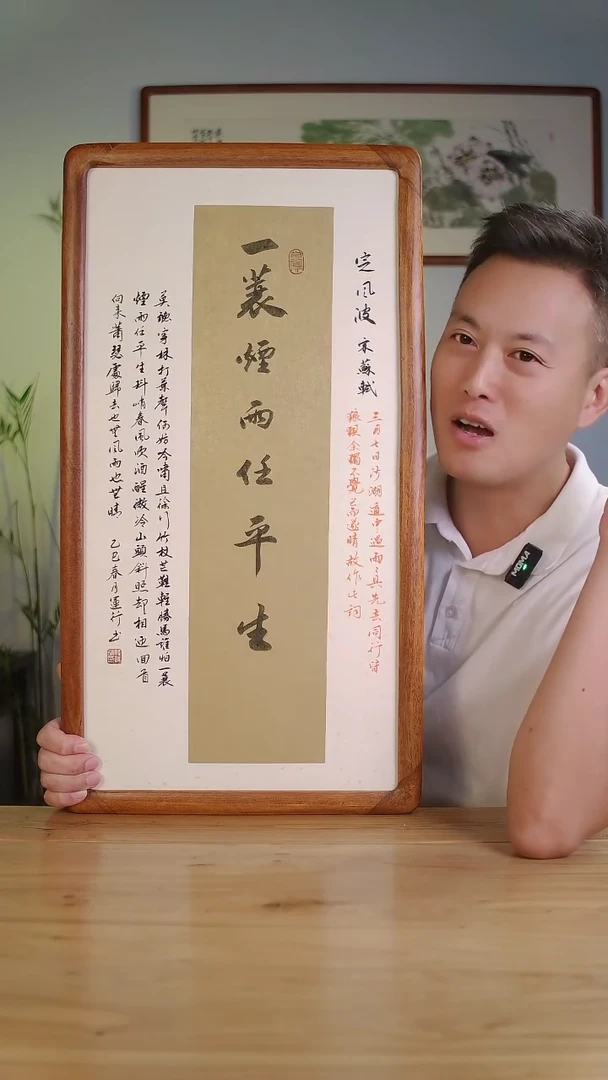 定風波 宋 蘇軾
三月七日沙湖道中遇雨々具先去同行皆
狼狽余獨不覺已而遂晴故作此詞
一蓑煙雨任平生
莫聽穿林打葉聲何妨吟嘯且徐行竹杖芒鞋輕勝馬誰怕一蓑
煙雨任平生料峭春風吹酒醒微冷山頭斜照却相迎回首
向來蕭瑟處歸去也無風雨也無晴 乙巳春
MOMA